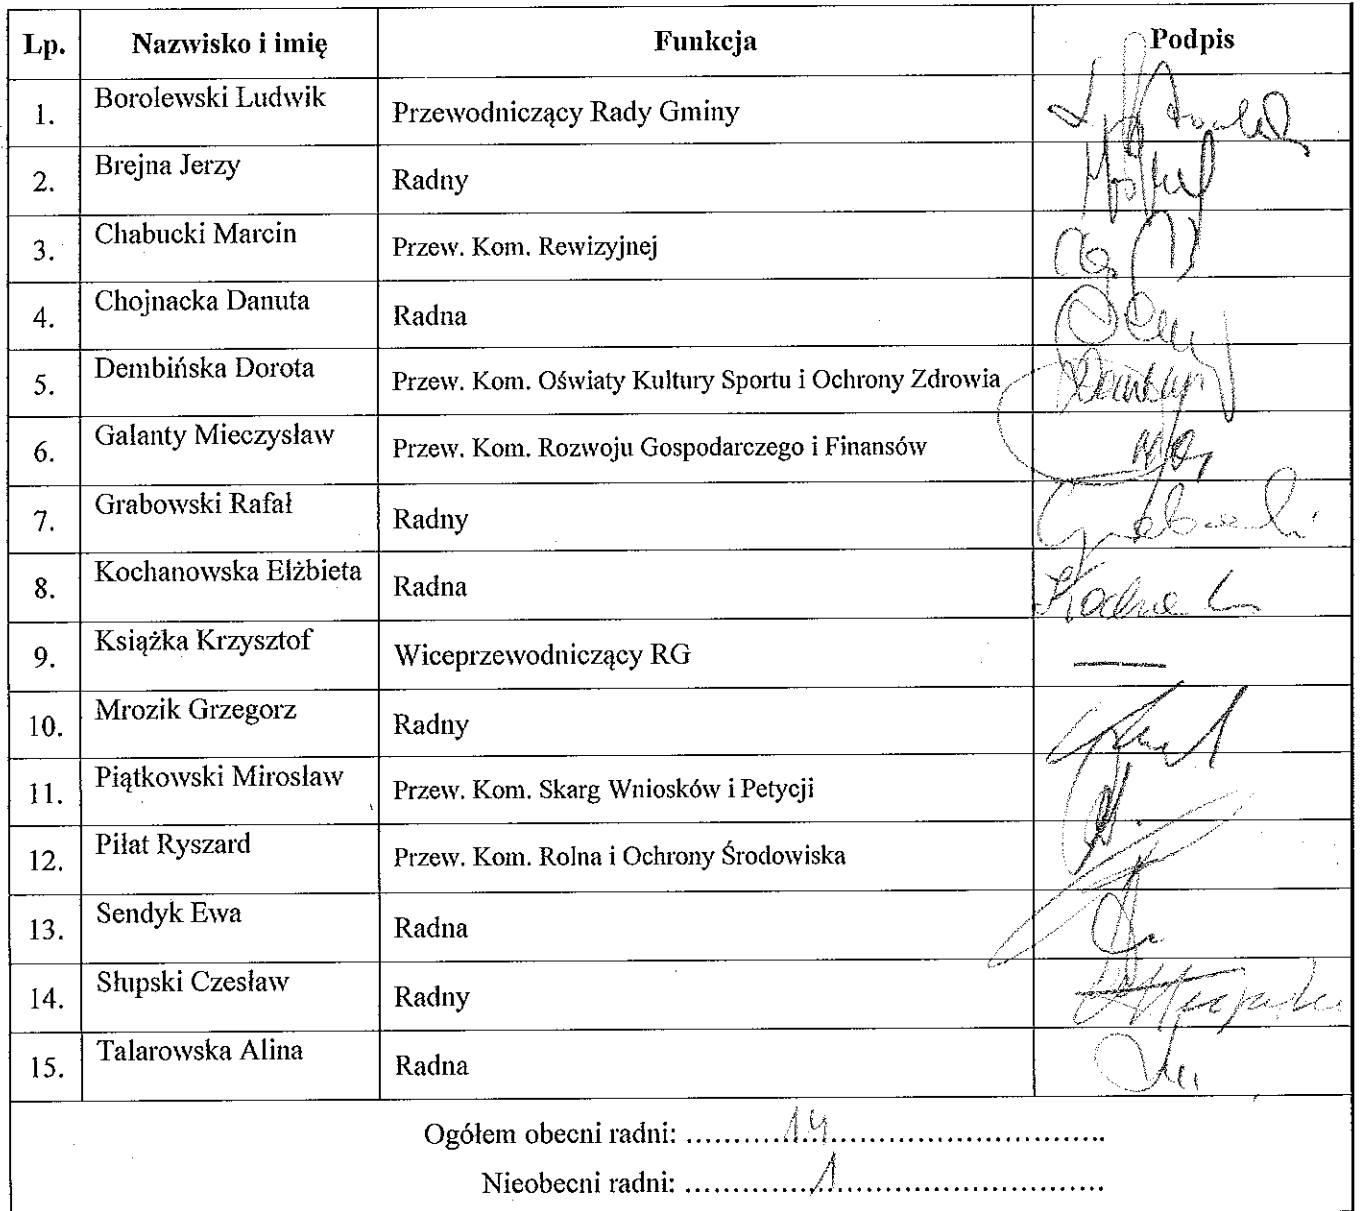 Lp. Nazwisko i imię Funkcja Podpis
1. Borolewski Ludwik Przewodniczący Rady Gminy
2. Brejna Jerzy Radny
3. Chabucki Marcin Przew. Kom. Rewizyjnej
4. Chojnacka Danuta Radna
5. Dembińska Dorota Przew. Kom. Oświaty Kultury Sportu i Ochrony Zdrowia
6. Galanty Mieczysław Przew. Kom. Rozwoju Gospodarczego i Finansów
7. Grabowski Rafał Radny
8. Kochanowska Elżbieta Radna
9. Książka Krzysztof Wiceprzewodniczący RG —
10. Mrozik Grzegorz Radny
11. Piątkowski Mirosław Przew. Kom. Skarg Wniosków i Petycji
12. Piłat Ryszard Przew. Kom. Rolna i Ochrony Środowiska
13. Sendyk Ewa Radna
14. Słupski Czesław Radny
15. Talarowska Alina Radna
Ogółem obecni radni: 14
Nieobecni radni: 1